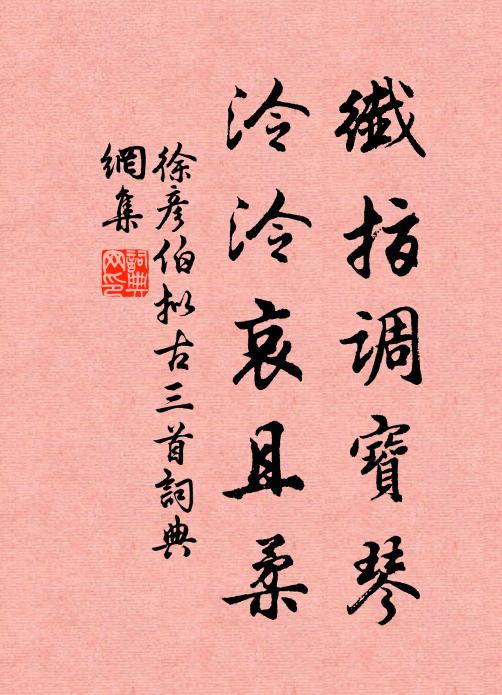 纖指調寶琴
泠泠哀且柔
徐彥伯拟古三首詞典
網集
詞典
网印